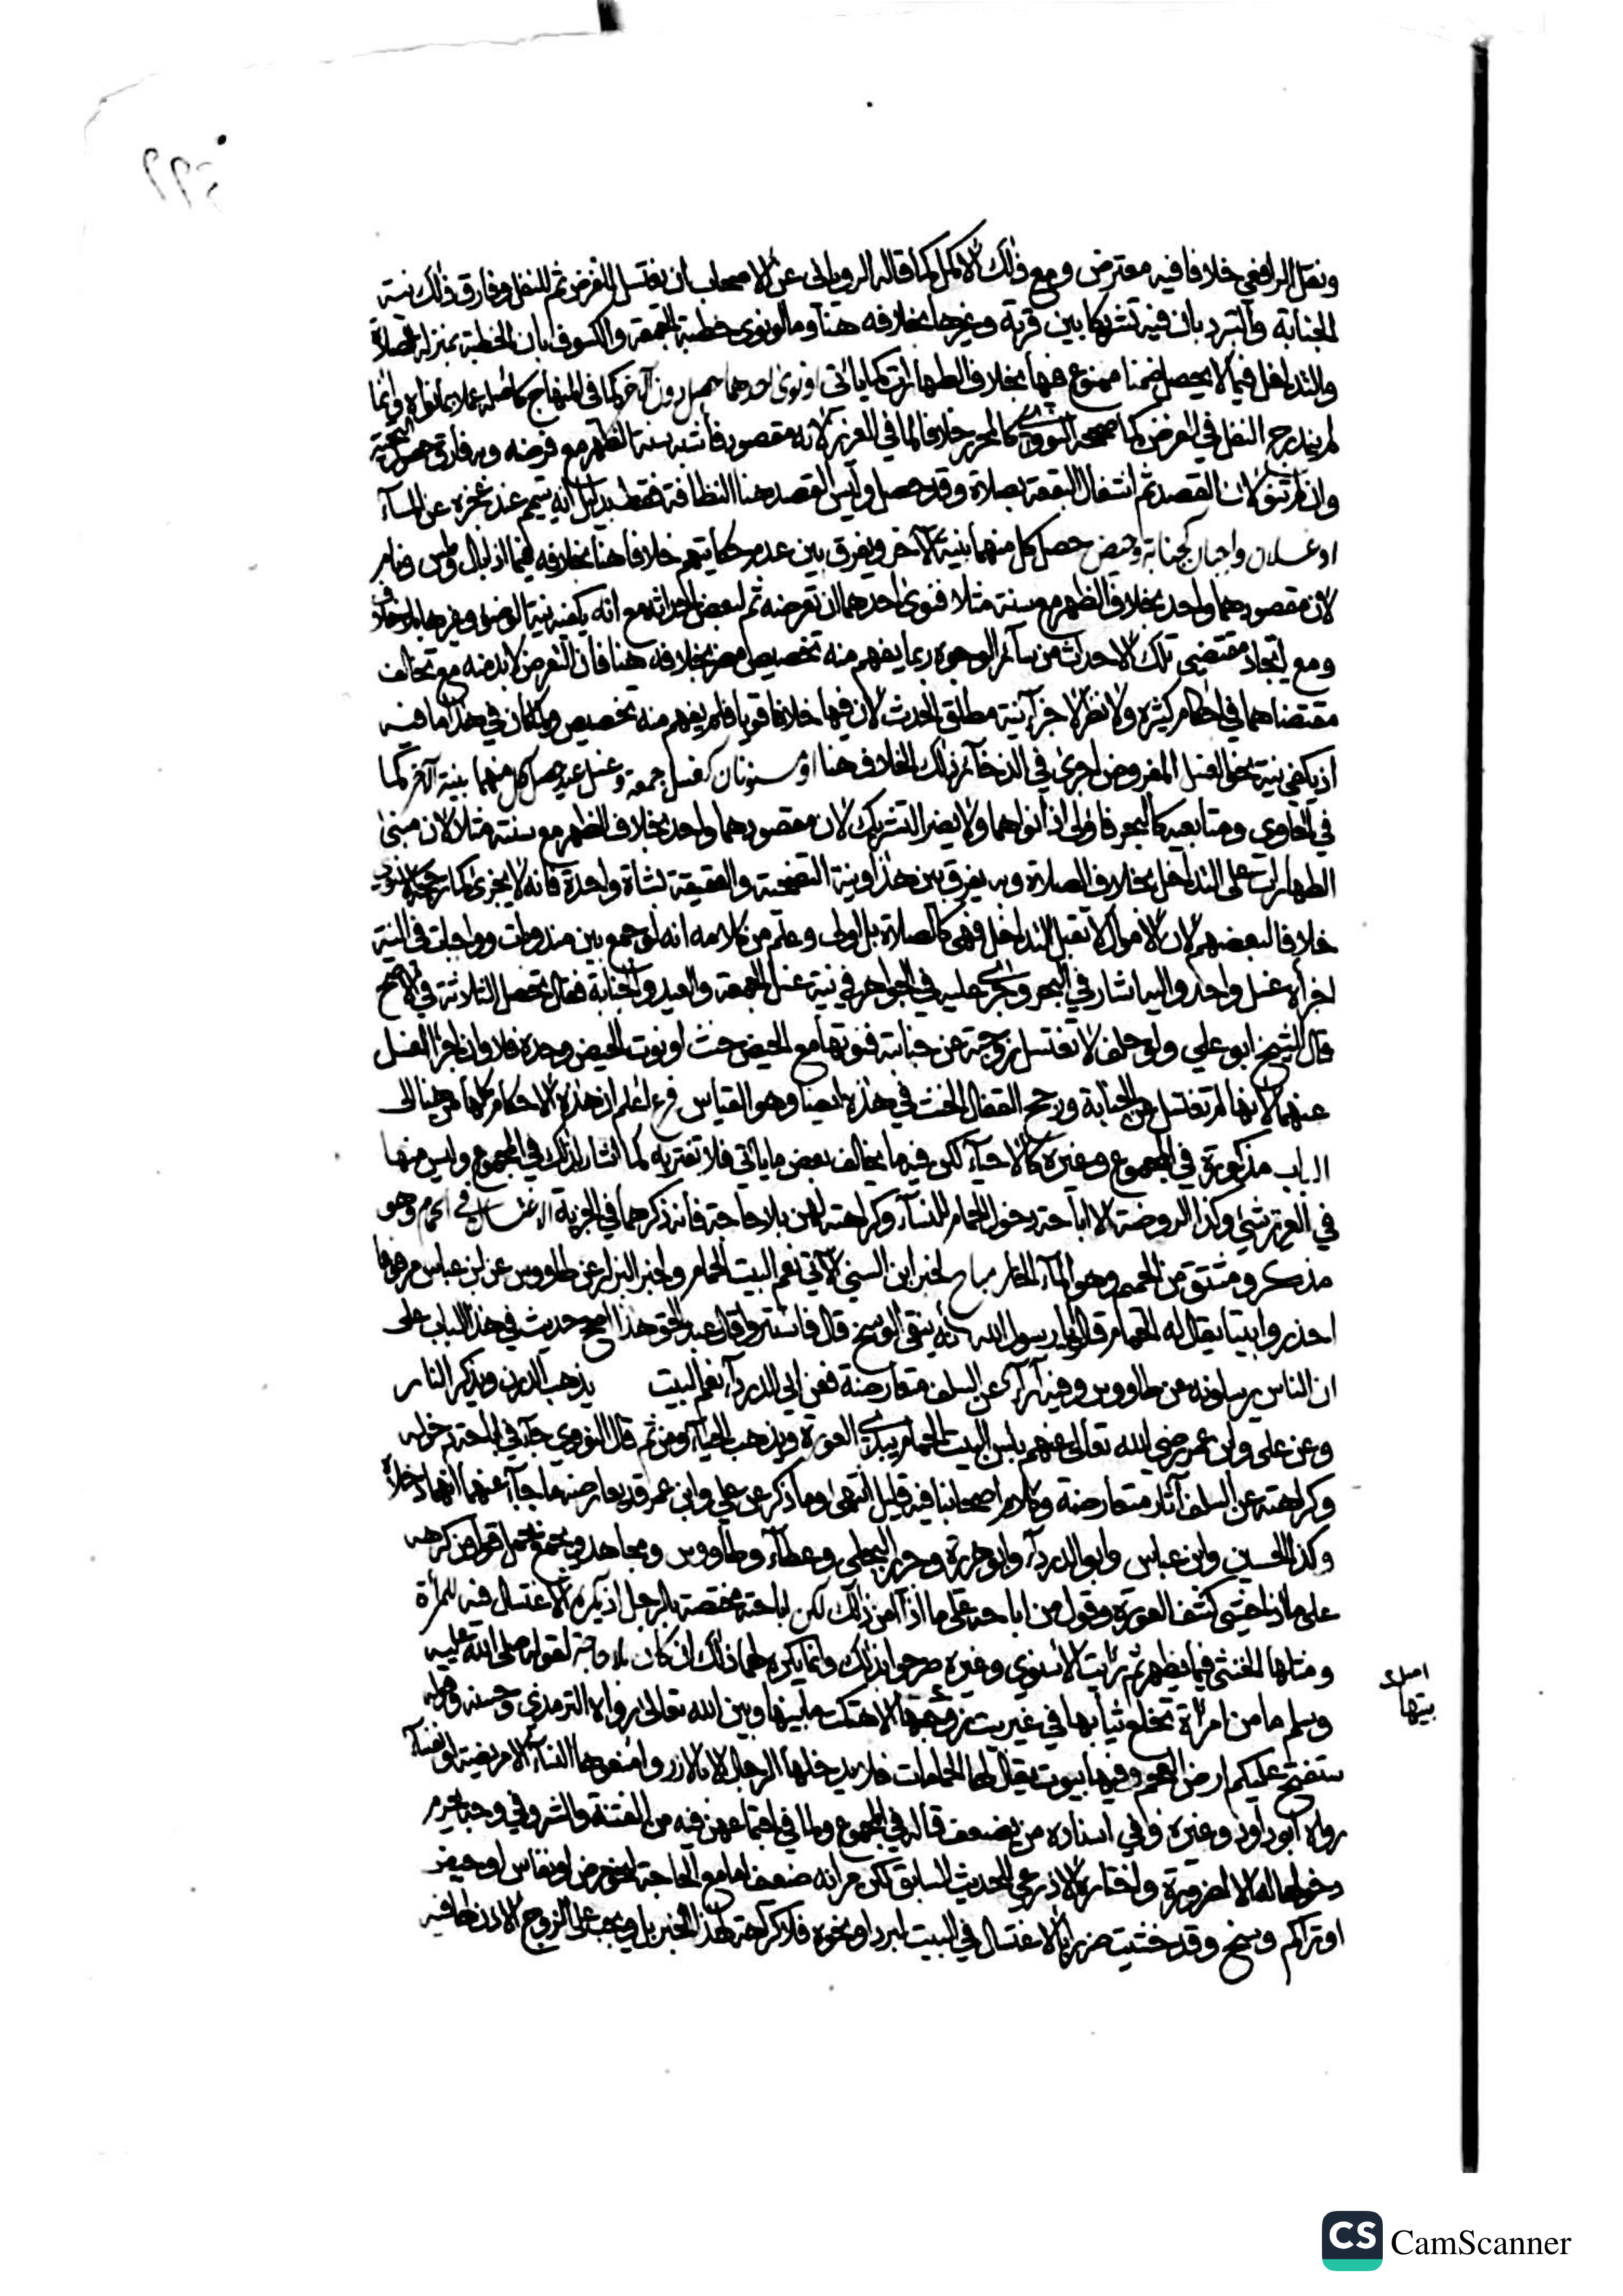 ٢٩٩
ونقل الرافعي خلافا فيه معترض ومع ذلك الاكمل كما قاله الروياني عن الاصحاب ان يغتسل للفرض ثم للنفل وفارق ذلك نية
الجنابة والتبرد بان فيه تشريكا بين قربة وغيرها بخلافه هنا وما لو نوى خطبة الجمعة والكسوف بان الخطبة بمنزلة الصلاة
والتداخل فيما لا يحصل ضمنا ممنوع فيها بخلاف الطهارات كما ياتي او نوى احدهما حصل دون الآخر كما في المنهاج كاصله عملا بما نواه وانما
لم يندرج النفل في الفرض كما صححه النووي كالمحرر خلافا لما في العزيز لانه مقصود فاشبه سنة الظهر مع فرضه وبه فارق حصول التحية
وان لم تنو لان القصد ثم اشغال البقعة بصلاة وقد حصل وليس القصد هنا النظافة فقط بدليل انه يتيمم عند عجزه عن الماء
او غسلان واجبان كجنابة وحيض حصل كل منهما بنية الآخر ويفرق بين عدم حكايتهم خلافا هنا بخلافه فيما اذا بال ولمس ونام
لان مقصودهما واحد بخلاف الظهر مع سنته مثلا فنوى احدهما ان تعرضه ثم لبعض احداثه مع انه يكفيه نية الوضوء وغيرها
ومع اتحاد مقتضى تلك الاحداث من سائر الوجوه ربما يفهم منه تخصيص مضر بخلافه هنا فان التعرض لا بد منه مع تخالف
مقتضاهما في احكام كثيرة ولا نظر لاجزاء نية مطلق الحدث لان فيها خلافا قويا فلم يفهم منه تخصيص ولما كان في هذا ما فيه
اذ يكفي نية نحو الغسل المفروض اجرى في الذخائر ذلك الخلاف هنا او مسنونان كغسل جمعة وغسل عيد حصل كل منهما بنية الآخر كما
في الحاوي ومتابعيه كالبحر فاولى اذا نواهما ولا يضر التشريك لان مقصودهما واحد بخلاف الظهر مع سنته مثلا لان مبنى
الطهارات على التداخل بخلاف الصلاة وبه يفرق بين هذا ونية التضحية والعقيقة بشاة واحدة فانه لا يجزئ كما رجحه
خلافا لبعضهم لان الاموال لا تقبل التداخل فهي كالصلاة بل اولى وعلم من كلامه انه لو جمع بين مندوبات وواجبات في النية
اجزأه غسل واحد واليه اشار في البحر وجرى عليه في الجواهر في نية غسل الجمعة والعيد والجنابة فقال تحصل الثلاثة في الاصح
قال الشيخ ابو علي ولو حلف لا تغتسل زوجته عن جنابة فنوتها مع الحيض حنث او نوت الحيض وحده فلا وان اجزأ الغسل
عنهما لانها لم تغتسل عن الجنابة ورجح القفال الحنث في هذه ايضا وهو القياس فرع اعلم ان هذه الاحكام كلها من هنا الى
الباب مذكورة في المجموع وغيره كالاحياء لكن فيه ما يخالف بعض ما ياتي فلا تغتر به كما اشار لذلك في المجموع وليس منها
في العزيز شيء وكذا الروضة الا اباحة دخول الحمام للنساء وكراهته لهن بلا حاجة فانه ذكرهما في الجزية الاغتسال في الحمام وهو
مذكر ومشتق من الحميم وهو الماء الحار مباح لخبر ابن السني الآتي نعم البيت الحمام ولخبر البزار عن طاووس عن ابن عباس مرفوعا
احذروا بيتا يقال له الحمام قالوا يا رسول الله انه ينقي الوسخ قال فاستتروا قال عبد الحق هذا اصح حديث في هذا الباب على
ان الناس يرسلونه عن طاووس وفيه آراء عن السلف متعارضة فعن ابي الدرداء نعم البيت يذهب الدرن ويذكر النار
وعن علي وابن عمر رضي الله تعالى عنهم بئس البيت الحمام يبدي العورة ويذهب الحياء ومن ثم قال النووي جاء في اباحة دخوله
وكراهته عن السلف آثار متعارضة وكلام اصحابنا فيه قليل انتهى وما ذكر عن علي وابن عمر قد يعارضه ما جاء عنهما انهما دخلاه
وكذا الحسين وابن عباس وابو الدرداء وابو هريرة وجرير البجلي وعطاء وطاووس ومجاهد ويجمع بحمل قول من كرهه
على ما اذا خشي كشف العورة وقول من اباحه على ما اذا امن ذلك لكن اباحته مختصة بالرجل اذ يكره الاغتسال فيه للمرأة
ومثلها الخنثى فيما يظهر ثم رايت الاسنوي وغيره صرحوا بذلك وانما يكره لهما ذلك ان كان بلا حاجة لقوله صلى الله عليه
وسلم ما من امرأة تخلع ثيابها في غير بيت زوجها الا هتكت ما بينها وبين الله تعالى رواه الترمذي وحسنه وقوله
ستفتح عليكم ارض العجم وفيها بيوت يقال لها الحمامات فلا يدخلها الرجال الا بالازر وامنعوها النساء الا مريضة او نفساء
رواه ابو داود وغيره وفي اسناده من يضعف قاله في المجموع ولما في اجتماعهن فيه من الفتنة والشر وفي وجه يحرم
دخولها له الا لضرورة واختاره الاذرعي للحديث السابق لكن مر انه ضعيف اما مع الحاجة لنحو مرض او نفاس او حيض
او تراكم وسخ وقد خشيت ضررا بالاغتسال في البيت لبرد او نحوه فلا كراهة لهذا الخبر بل ويجب على الزوج الاذن لها فيه
بيتها
CS CamScanner